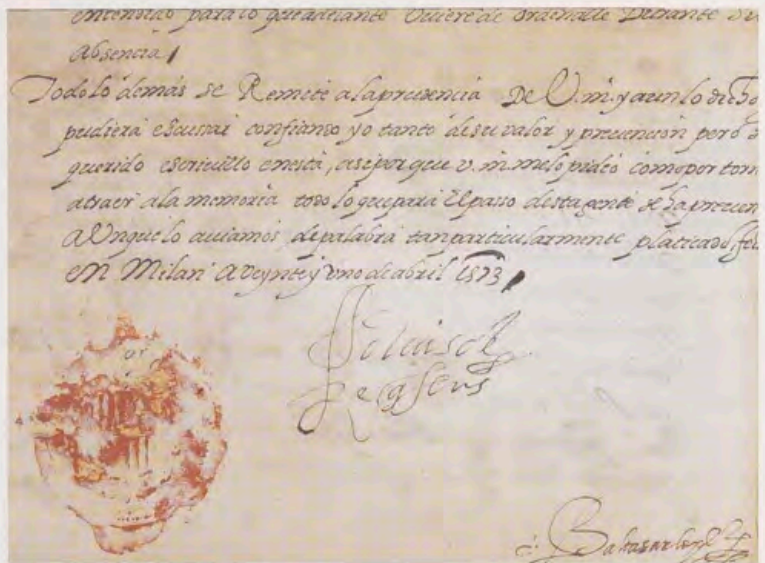 entendido para lo que adelante Uviere de ordenalle Durante Su
absencia
Todo lo demás se Remite a la presencia De V. m. y aun lo dicho
pudiera escussar confianso yo tanto de su valor y prevencion pero
querido escrivillo en esta, asi porque v. m. me lo pidió como por torn
atraer a la memoria todo lo que para El passo desta gente se ha
aUnque lo aviamos de palabra tan particularmente platicado,
en Milan a veynte y uno de abril 1573
Don luis de
Reqsens
Baltasar